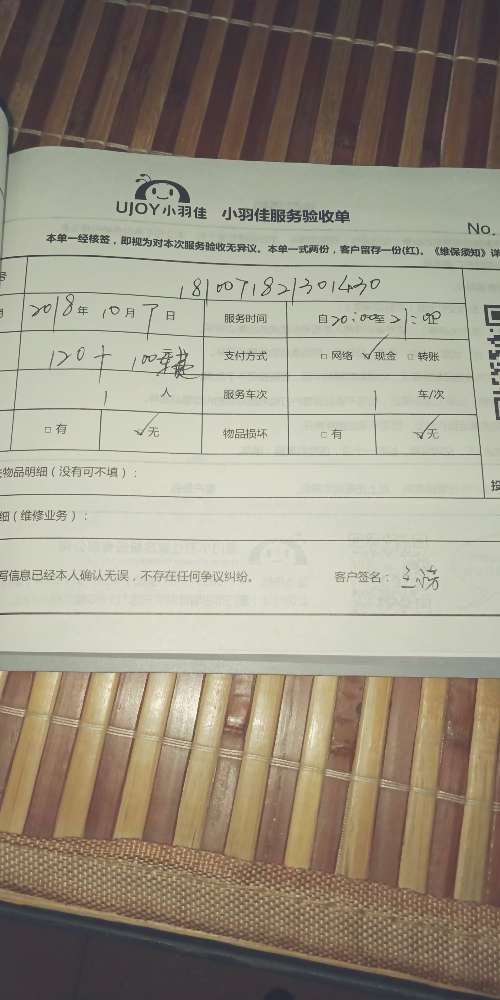 UJOY小羽佳 小羽佳服务验收单
No.
本单一经核签，即视为对本次服务验收无异议。本单一式两份，客户留存一份(红)。《维保须知》详
号 181007182301430
期 2018年 10月 7日 服务时间 自20:00至21:00止
120+100 支付方式 □网络 ✓现金 □转账
1 人 服务车次 1 车/次
□有 ✓无 物品损坏 □有 ✓无
物品明细（没有可不填）：
投
细（维修业务）：
写信息已经本人确认无误，不存在任何争议纠纷。 客户签名：